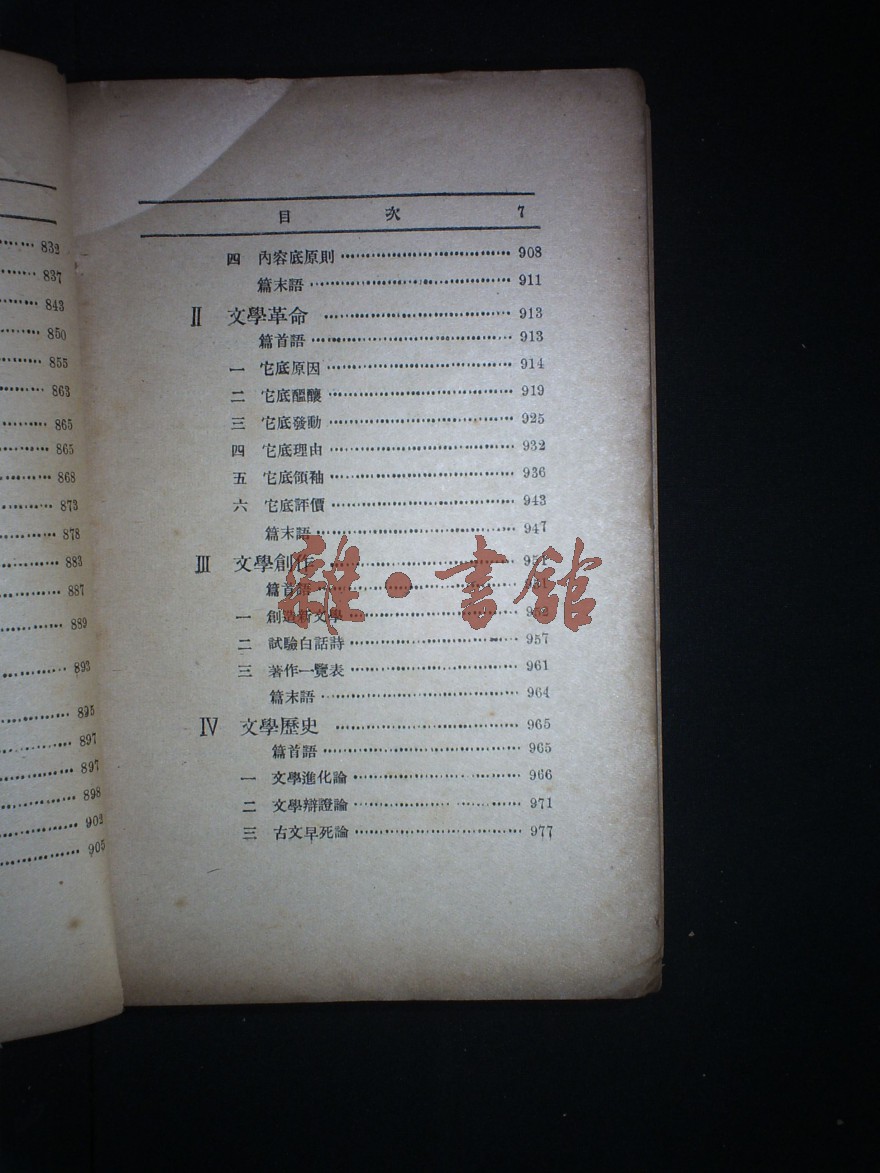 832
837
843
850
855
863
865
865
868
873
878
883
887
889
893
895
897
897
898
902
905
目次 7
四 內容底原則 908
篇末語 911
Ⅱ 文學革命 913
篇首語 913
一 它底原因 914
二 它底醞釀 919
三 它底發動 925
四 它底理由 932
五 它底領袖 936
六 它底評價 943
篇末語 947
Ⅲ 文學創作 951
篇首語
一 創造新文學
二 試驗白話詩 957
三 著作一覽表 961
篇末語 964
Ⅳ 文學歷史 965
篇首語 965
一 文學進化論 966
二 文學辯證論 971
三 古文早死論 977
雜·書館